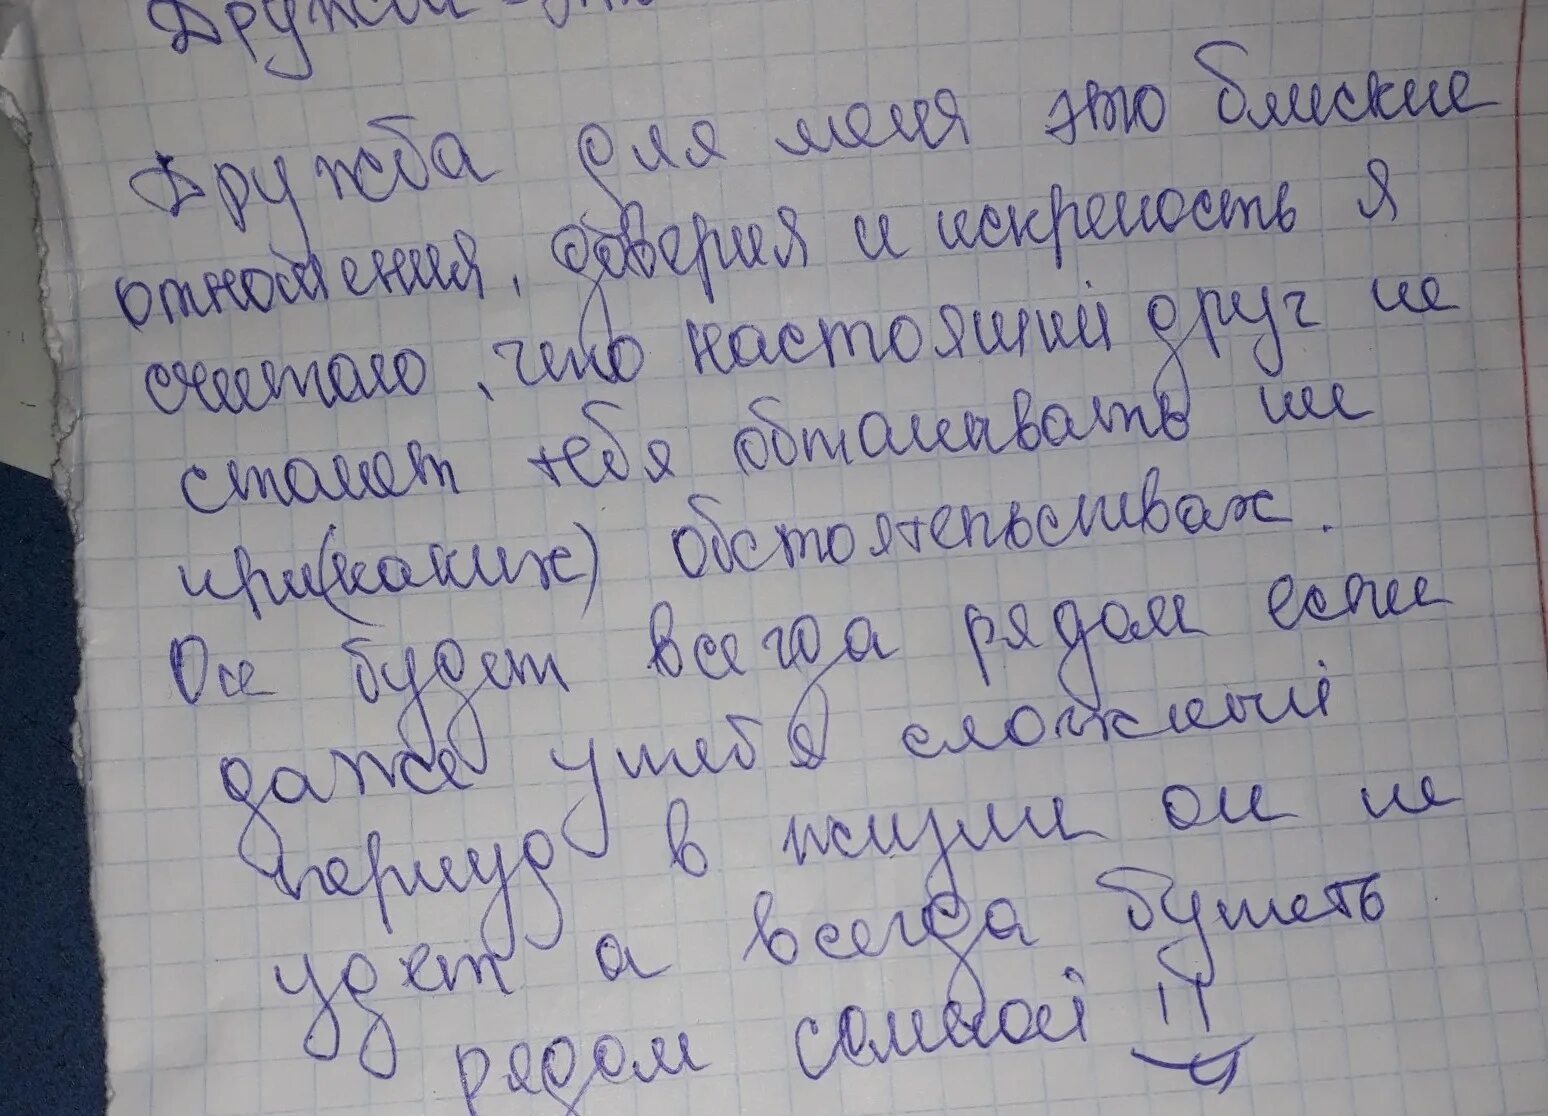 Дружба для меня это блиские
отношения, доверия и искреность я
считаю, что настоящий друг не
станет тебя обманывать ни
при(каких) обстоятельсивах.
Он будет всегда рядом если
даже утебя сложный
периуд в жизни он не
удет а всегда бушеть
рядом сомной !!